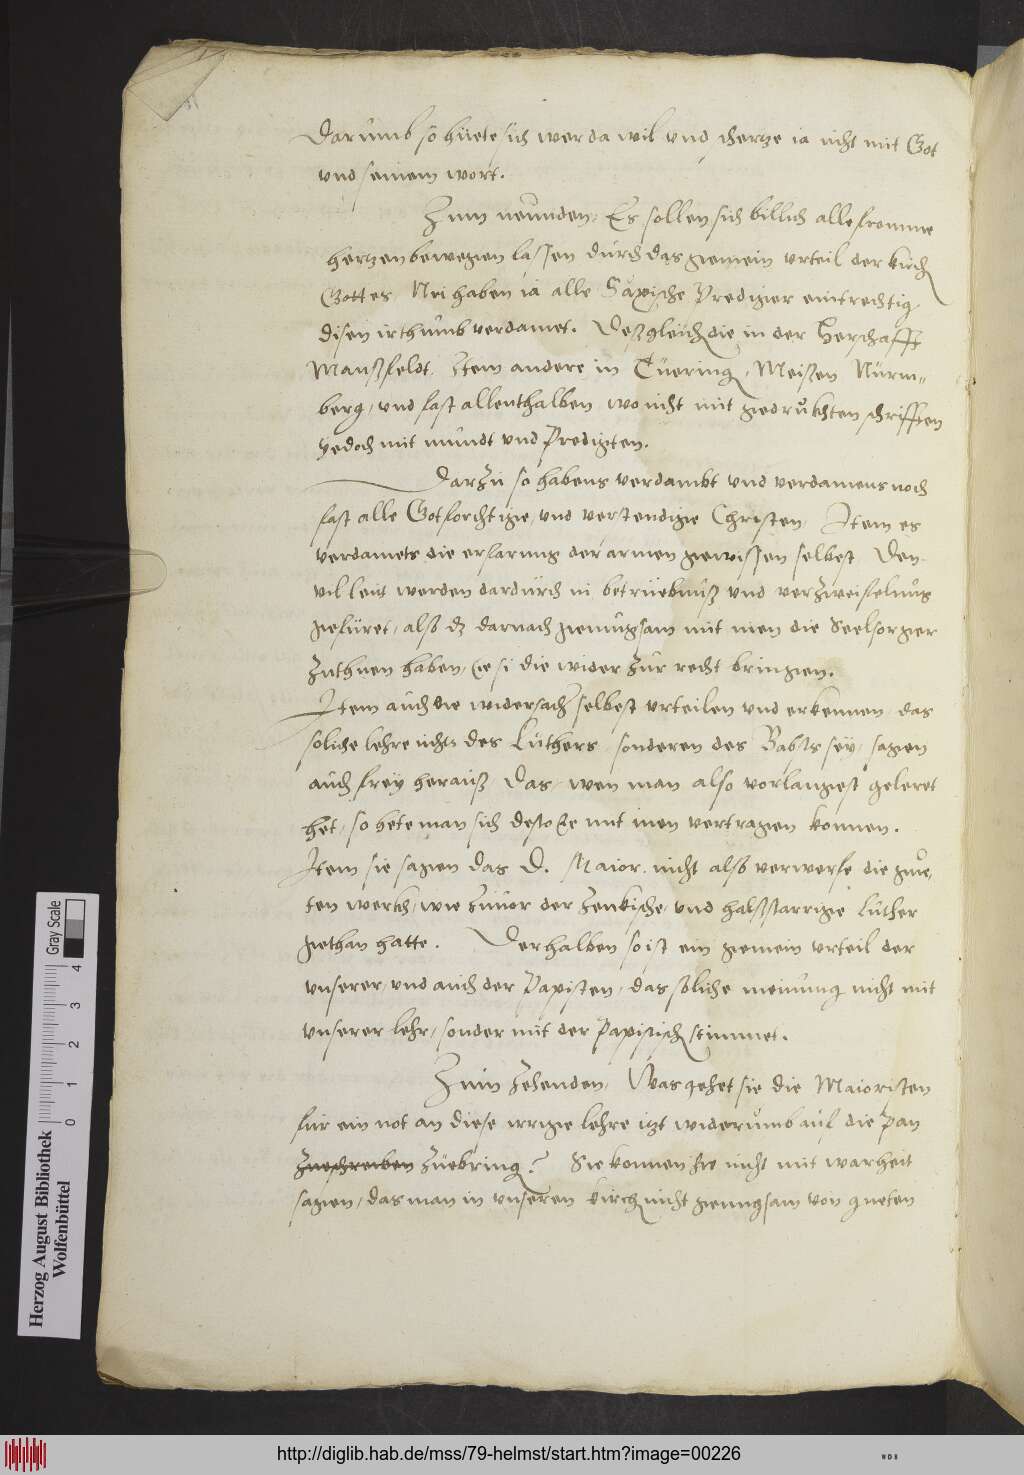 Darumb so hüete sich wer da wil vnd schertze ia nicht mit Got
vnd seinem wort.
Zum neunden, Es sollen sich billich alle fromme
hertzen bewegen lassen durch das gemein vrteil der kirch
Gottes. Nu haben ia alle Säxische Prediger eintrechtig
disen irthumb verdamet. Deßgleich die in der Herschafft
Manßfeldt. Item andere in Tüering, Meissen Nürm=
berg, vnd fast allenthalben, wo nicht mit gedrukhten schrifften
yedoch mit mundt vnd Predigten.
Darzu so habens verdambt vnd verdamens noch
fast alle Gotforchtige, vnd verstendige Christen. Item es
verdamets die erfarung der armen gewissen selbest. Den
vil leut werden dardurch in betrüebnuß vnd verzweifelung
gefüret, alß dz darnach genugsam mit inen die Seelsorger
zuthuen haben, das si die wider zur recht bringen.
Item auch die widersacher selbest vrteilen vnd erkennen, das
soliche lehre nicht des Luthers, sonderen des Babsts sey, sagen
auch frey herauß, Das, wen man also vorlangest geleret
het, so hete man sich desto ee mit inen vertragen konnen.
Item sie sagen das D. Maior nicht alß verwerfe die gue,
ten werck, wie zuuor der zenkische, vnd halßstarrige Luther
gethan hatte. Derhalben so ist ein gemein vrteil der
vnserer, vnd auch der Papisten, das soliche meinung nicht mit
vnserer lehr, sonder mit der Papistisch stimmet.
Zum zehenden, Was gehet sie die Maioristen
für ein not an diese irrige lehre itzt widerumb auf die pan
zueschreiben züebring? Sie konnen hie nicht mit warheit
sagen, das man in vnseren kirch nicht genugsam von gueten
Herzog August Bibliothek
Wolfenbüttel
0 1 2 3 4
Gray Scale
http://diglib.hab.de/mss/79-helmst/start.htm?image=00226
WDB